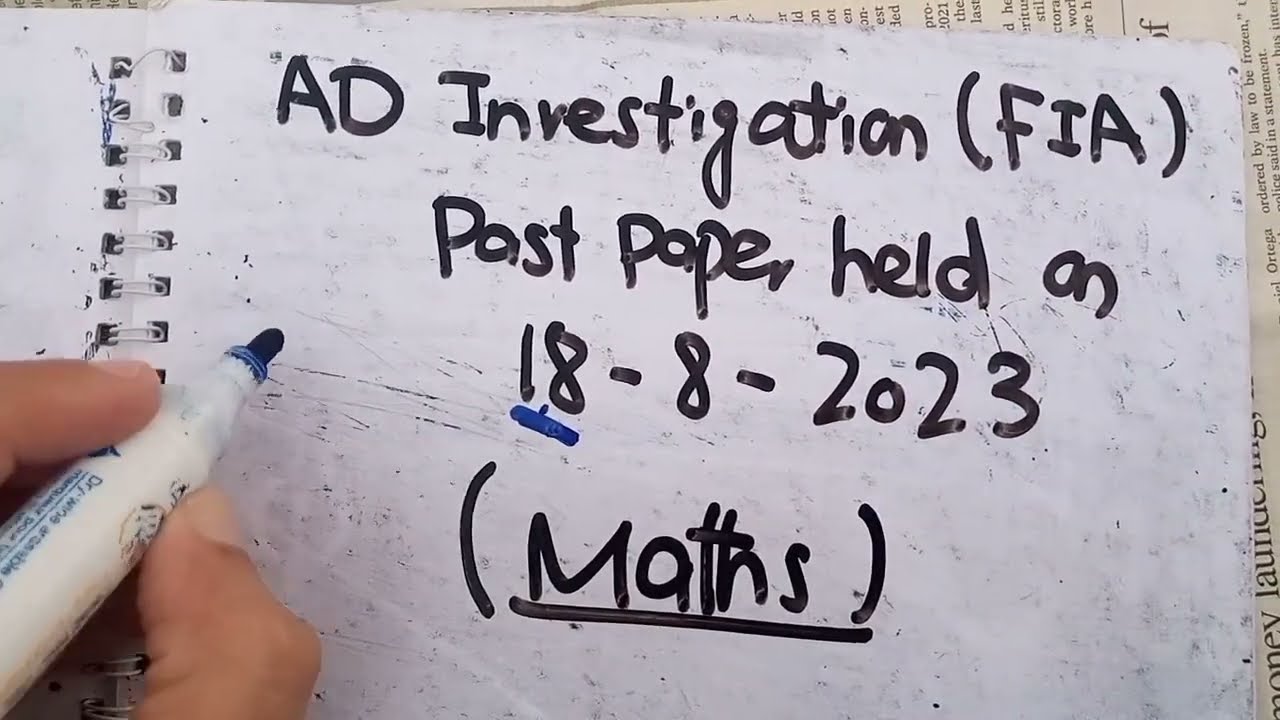 AD Investigation (FIA)
Past Paper held on
18-8-2023
(Maths)
ordered by law to be frozen,"
said in a statement.
Ortega
money laundering,
of